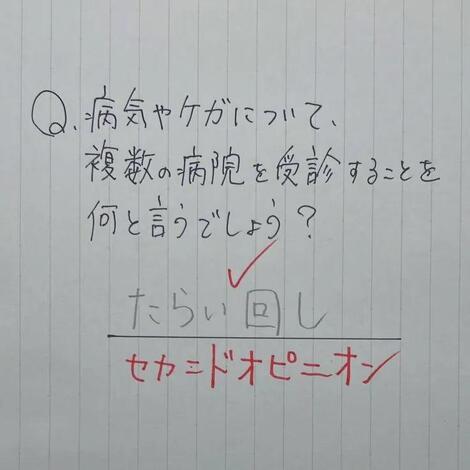 Q.病気やケガについて、
複数の病院を受診することを
何と言うでしょう？
たらい回し
セカンドオピニオン